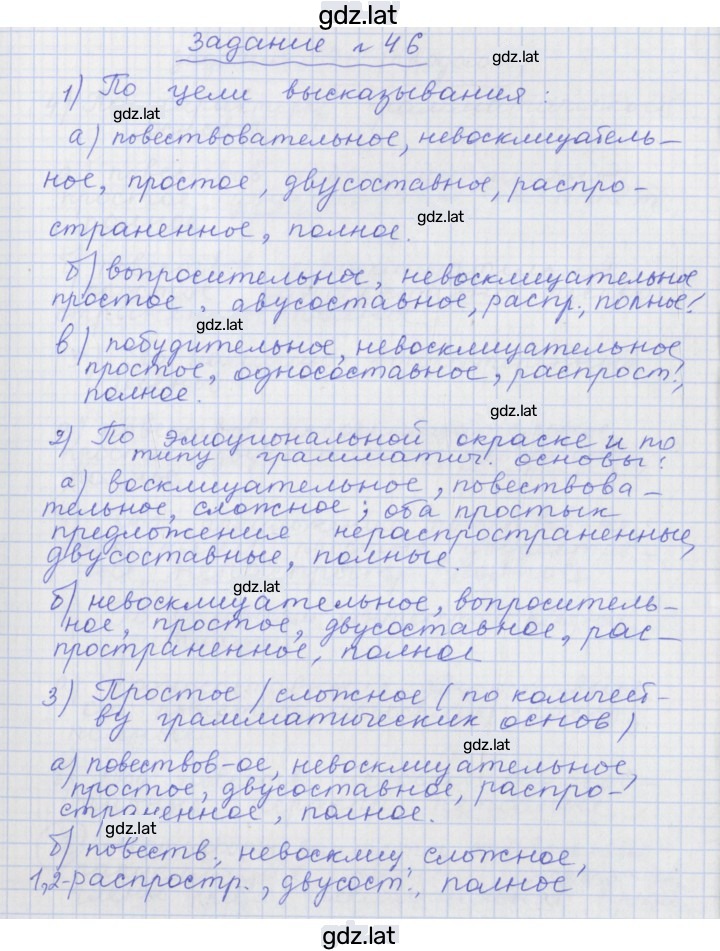 gdz.lat
Задание №46
gdz.lat
1) По цели высказывания:
gdz.lat
а) повествовательное, невосклицатель-
ное, простое, двусоставное, распро-
gdz.lat
страненное, полное.
б) вопросительное, невосклицательное
простое, двусоставное, распр., полное!
gdz.lat
в) побудительное, невосклицательное,
простое, односоставное, распрост.,
полное.
gdz.lat
2) По эмоциональной окраске и по
типу грамматич. основы:
а) восклицательное, повествова-
тельное, сложное; оба простых
предложения нераспространенные,
двусоставные, полные.
gdz.lat
б) невосклицательное, вопроситель-
ное, простое, двусоставное, рас-
пространенное, полное
3) Простое/сложное (по количест-
ву грамматических основ)
gdz.lat
а) повествов-ое, невосклицательное,
простое, двусоставное, распро-
страненное, полное.
gdz.lat
б) повеств., невосклиц. сложное,
1,2-распростр., двусост., полное
gdz.lat